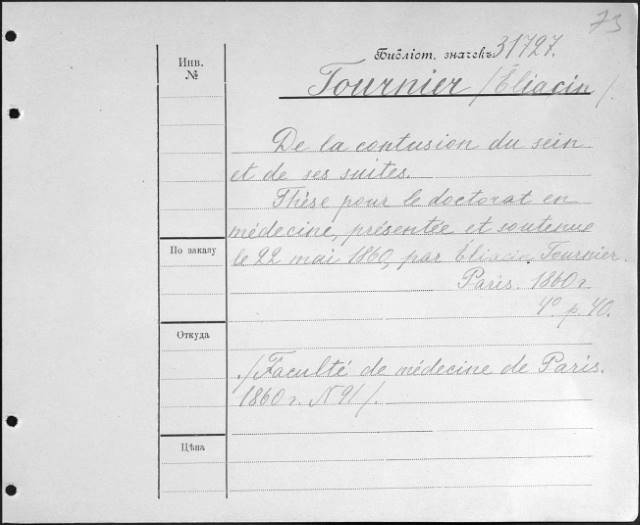 73
Библіот. значекъ 31727.
Инв.
№
Fournier /Éliacin/.
De la contusion du sein
et de ses suites.
Thèse pour le doctorat en
médecine, présentée et soutenue
По заказу
le 22 mai 1860, par Éliacin Fournier.
Paris. 1860 г.
4º. p. 40.
Откуда
/Faculté de médecine de Paris.
1860 г. N 91/.
Цѣна